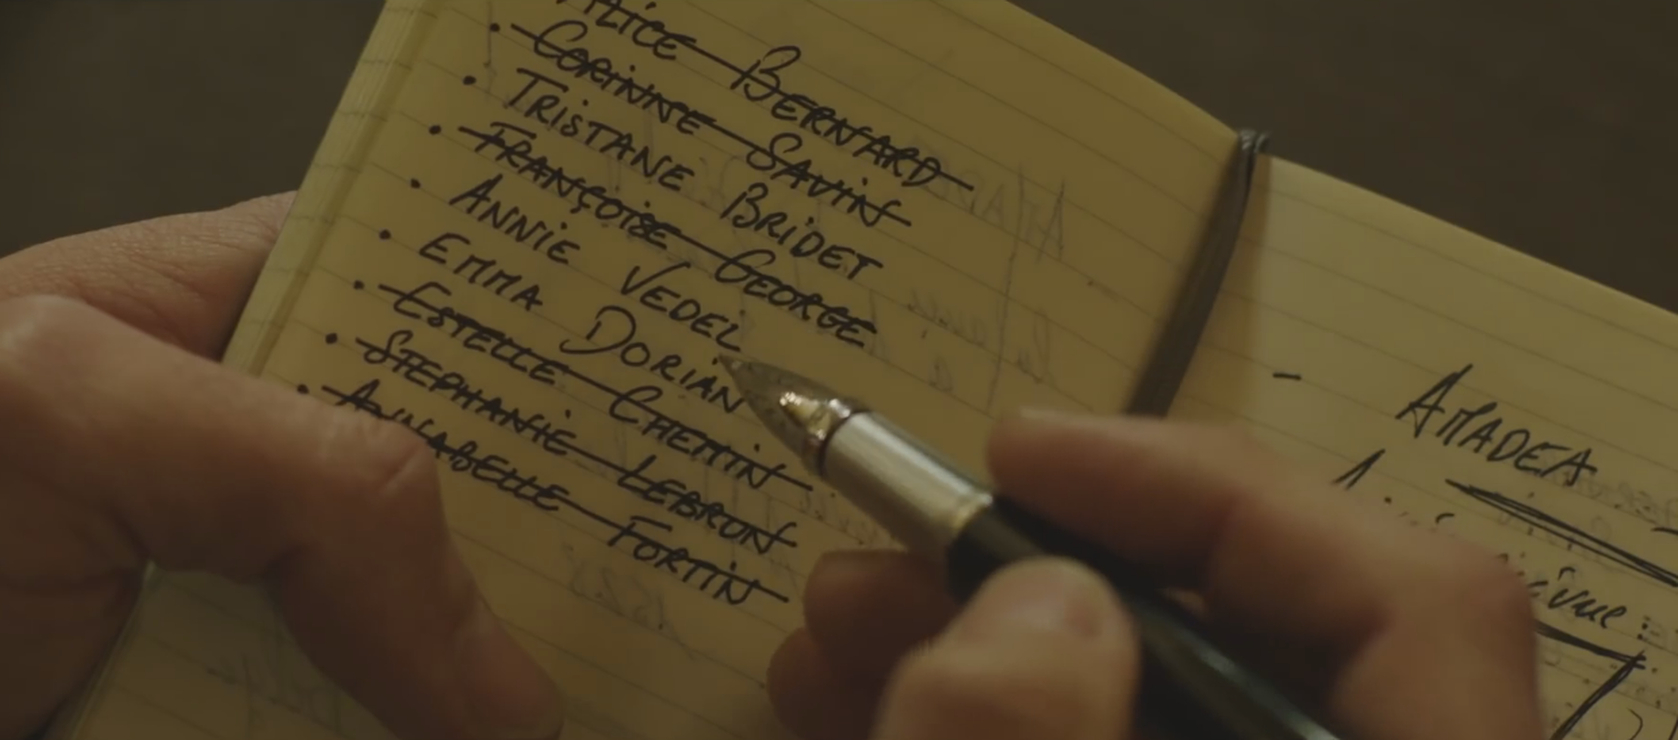 ALICE BERNARD
• CORINNE SAVIN
• TRISTANE BRIDET
• FRANÇOISE GEORGE
• ANNIE VEDEL
• EMMA DORIAN
• ESTELLE CHEMIN
• STEPHANIE LEBRUN
• ANNABELLE FORTIN
- AMADEA